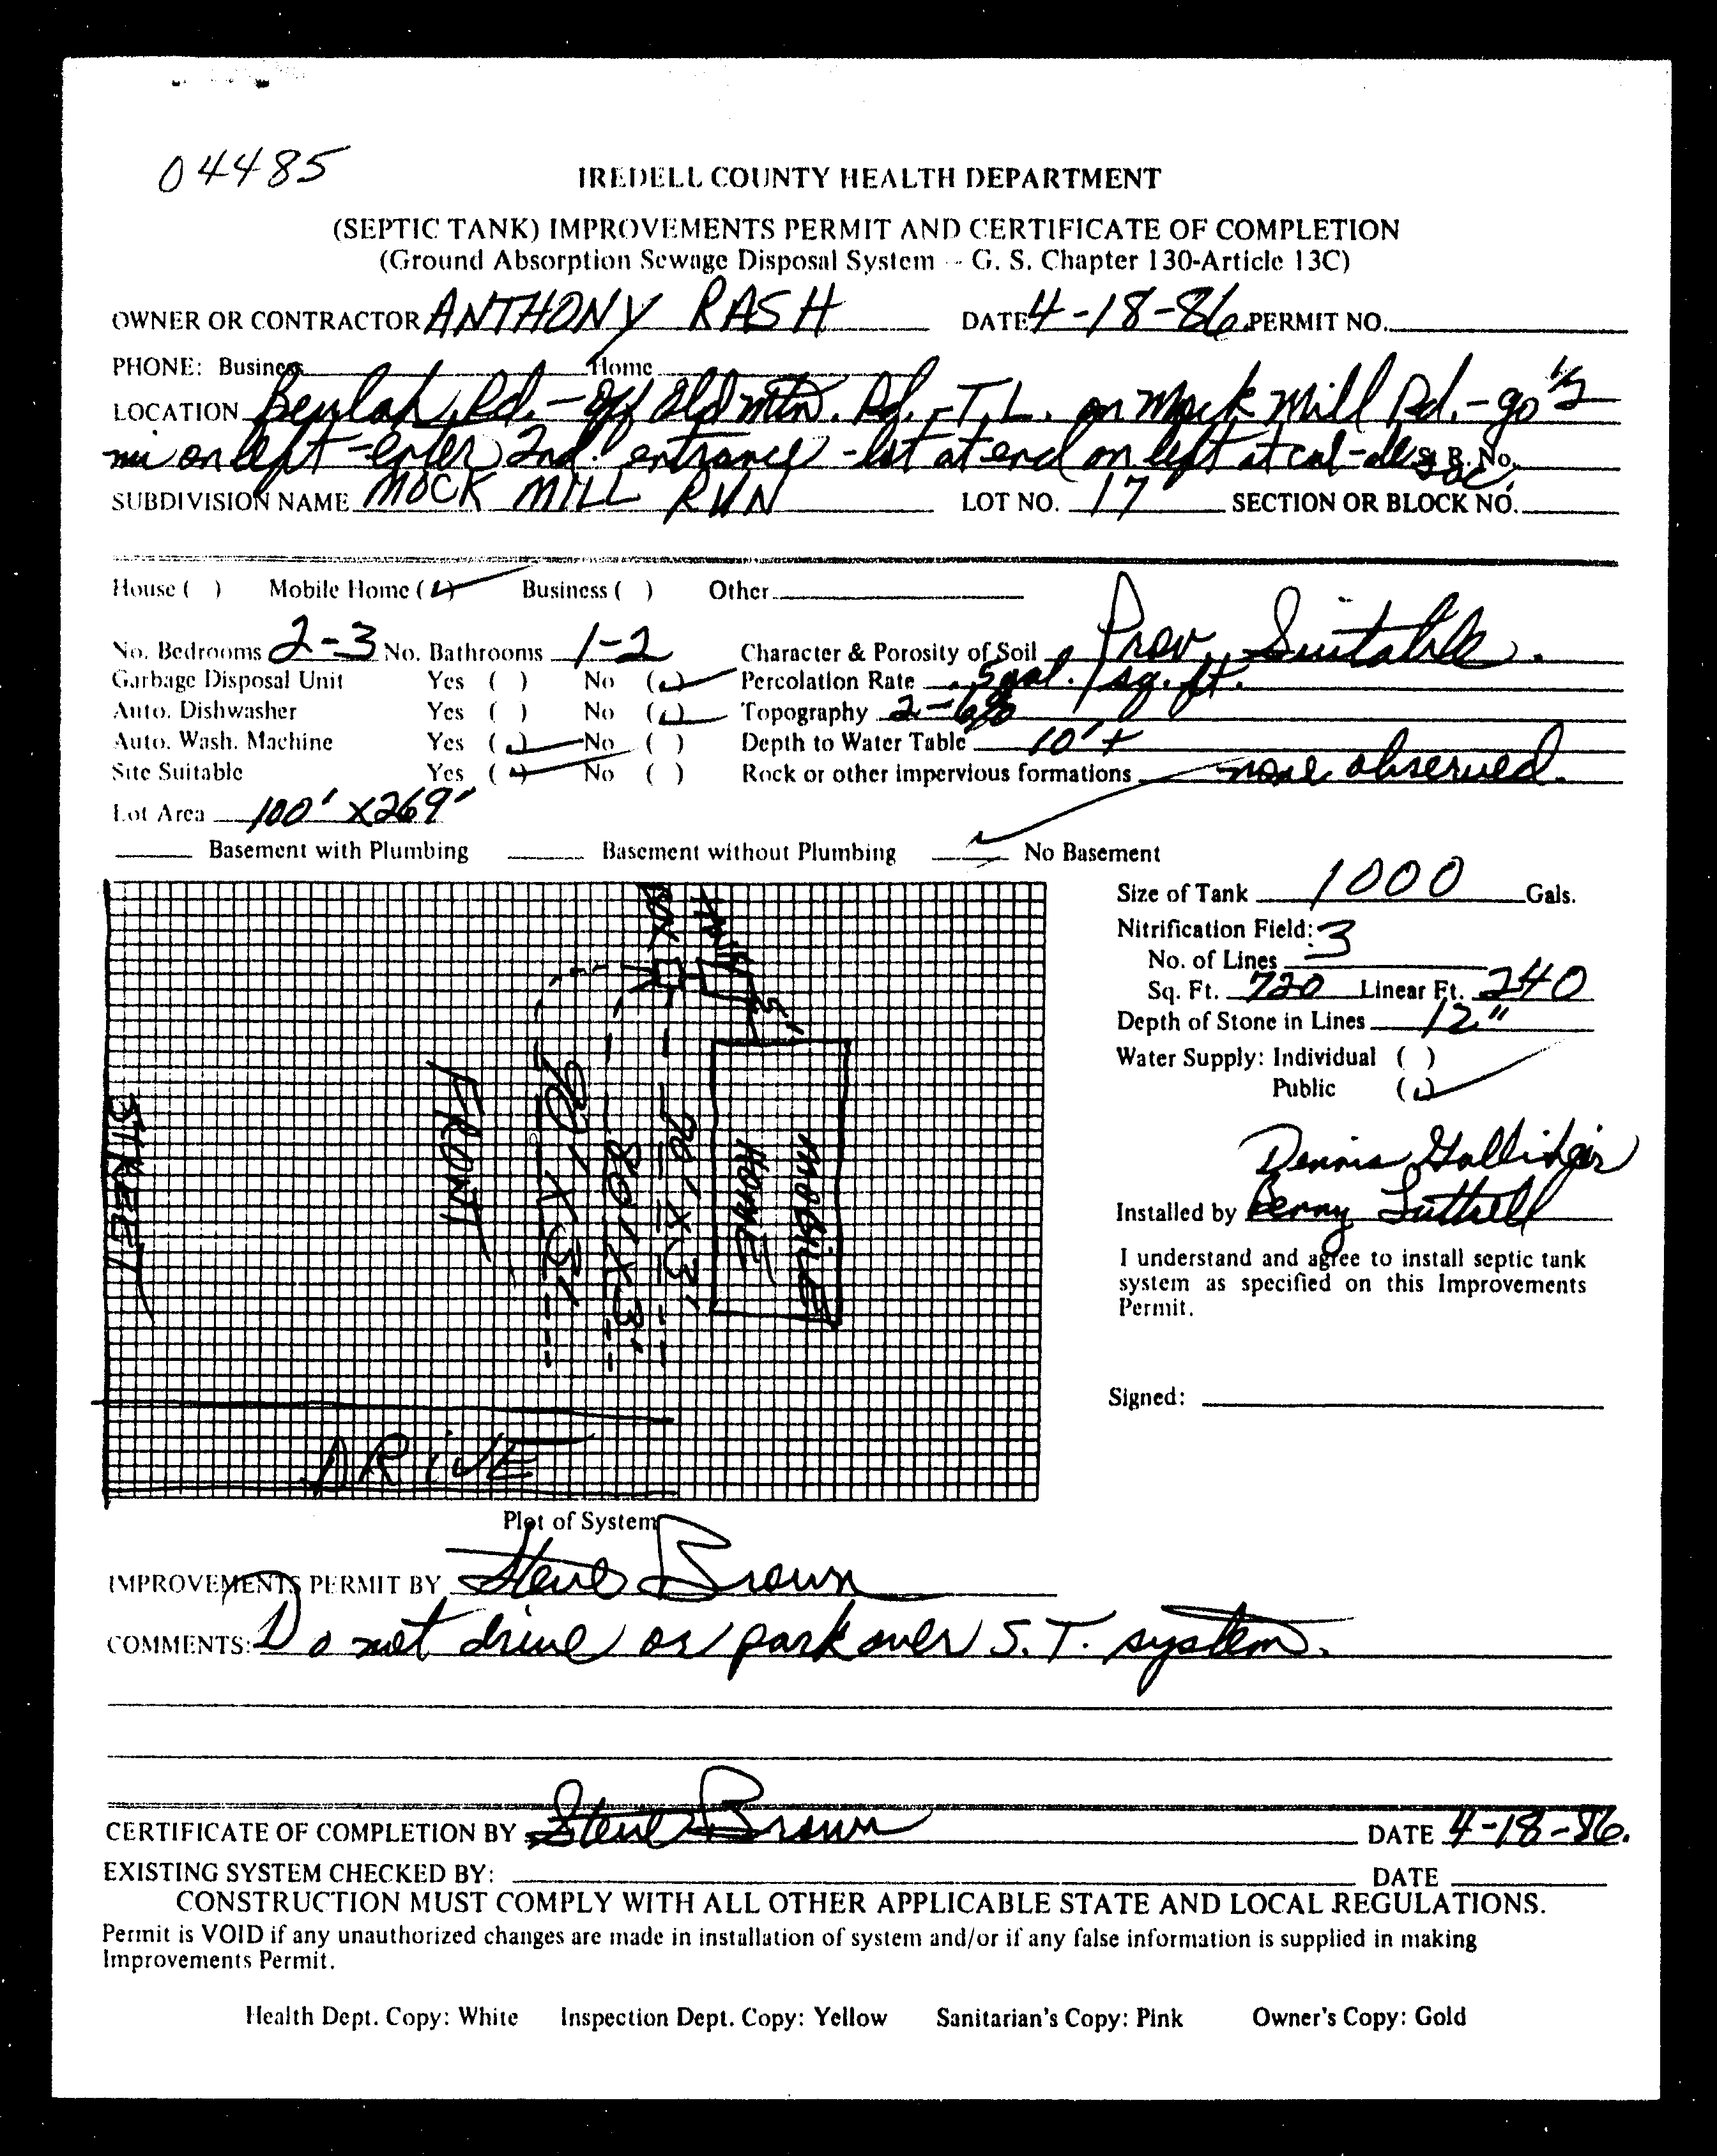 04485
IREDELL COUNTY HEALTH DEPARTMENT
(SEPTIC TANK) IMPROVEMENTS PERMIT AND CERTIFICATE OF COMPLETION
(Ground Absorption Sewage Disposal System -- G. S. Chapter 130-Article 13C)
OWNER OR CONTRACTOR ANTHONY RASH DATE 4-18-86 PERMIT NO.
PHONE: Business Home
LOCATION Beulah Rd. - off Old Mtn. Rd. - T.L. on Mock Mill Rd. - go 1/2
mi on left - enter 2nd. entrance - lot at end on left at cul-de S. R. No.
sac.
SUBDIVISION NAME MOCK MILL RUN LOT NO. 17 SECTION OR BLOCK NO.
House ( ) Mobile Home (✓) Business ( ) Other
No. Bedrooms 2-3 No. Bathrooms 1-2 Character & Porosity of Soil Prov. Suitable.
Garbage Disposal Unit Yes ( ) No (✓) Percolation Rate .5 gal./sq. ft.
Auto. Dishwasher Yes ( ) No (✓) Topography 2-6%
Auto. Wash. Machine Yes (✓) No ( ) Depth to Water Table 10'+
Site Suitable Yes (✓) No ( ) Rock or other impervious formations none observed.
Lot Area 100' X 269'
Basement with Plumbing Basement without Plumbing ✓ No Basement
Size of Tank 1000 Gals.
Nitrification Field:
No. of Lines 3
Sq. Ft. 720 Linear Ft. 240
Depth of Stone in Lines 12"
Water Supply: Individual ( )
Public (✓)
Dennis
Installed by Benny Luttrell
I understand and agree to install septic tank
system as specified on this Improvements
Permit.
Signed:
BOX
5'
STREET
FRONT
80' X 3'
80' X 3'
MOBILE
HOME
DRIVE
Plot of System
IMPROVEMENTS PERMIT BY Steve Brown
COMMENTS: Do not drive or park over S.T. system.
CERTIFICATE OF COMPLETION BY Steve Brown DATE 4-18-86.
EXISTING SYSTEM CHECKED BY: DATE
CONSTRUCTION MUST COMPLY WITH ALL OTHER APPLICABLE STATE AND LOCAL REGULATIONS.
Permit is VOID if any unauthorized changes are made in installation of system and/or if any false information is supplied in making
Improvements Permit.
Health Dept. Copy: White Inspection Dept. Copy: Yellow Sanitarian's Copy: Pink Owner's Copy: Gold